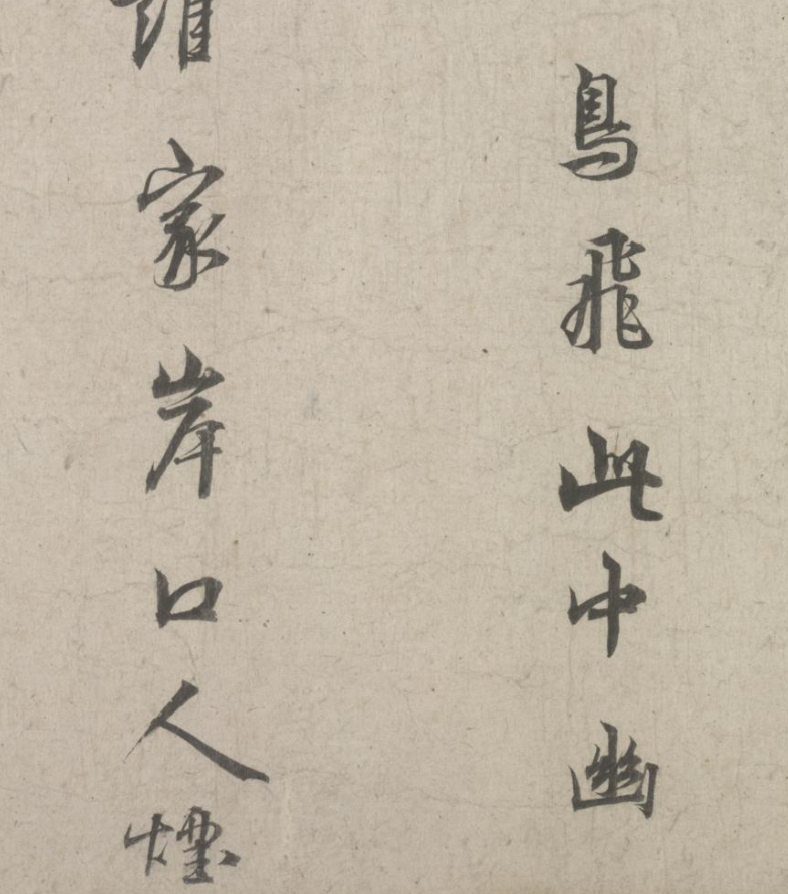 鳥飛此中幽
家岸口人煙